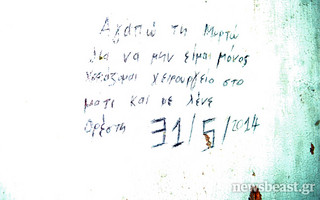 Αγαπώ τη Μυρτώ
για να μην είμαι μόνος
χρειάζομαι χειρουργείο στο
ματι και με λένε
Ορέστη 31/5/2014
newsbeast.gr